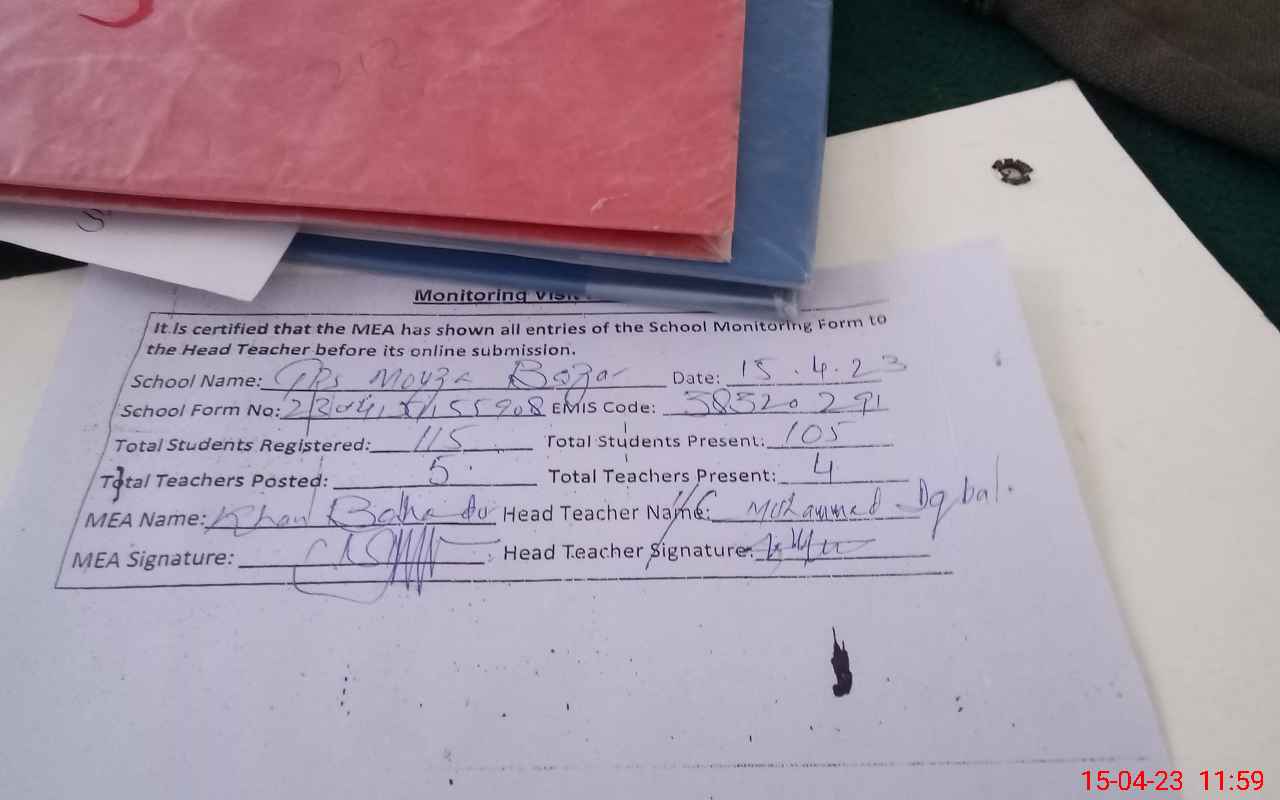 Monitoring Visit
It is certified that the MEA has shown all entries of the School Monitoring Form to
the Head Teacher before its online submission.
School Name: GPS Moyza Bazar Date: 15.4.23
School Form No: EMIS Code: 38320291
Total Students Registered: 115 Total Students Present: 105
Total Teachers Posted: 5 Total Teachers Present: 4
MEA Name: Khan Bahadur Head Teacher Name: Mohammad Iqbal.
MEA Signature: Head Teacher Signature:
15-04-23 11:59